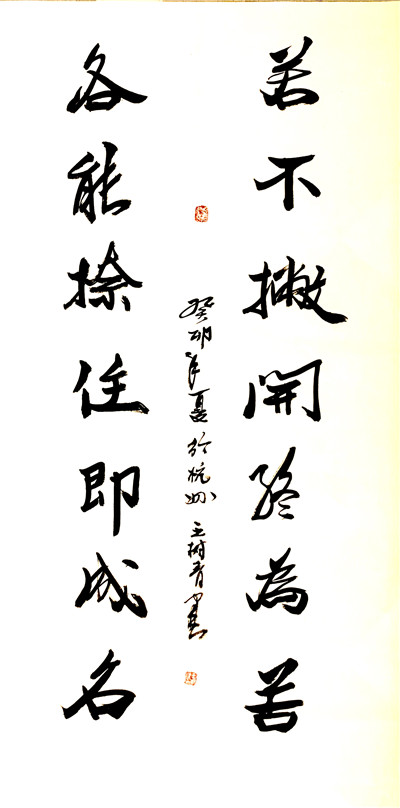 若不撇開終為苦
各能捺住即成名
癸卯年夏於杭州王樹青書